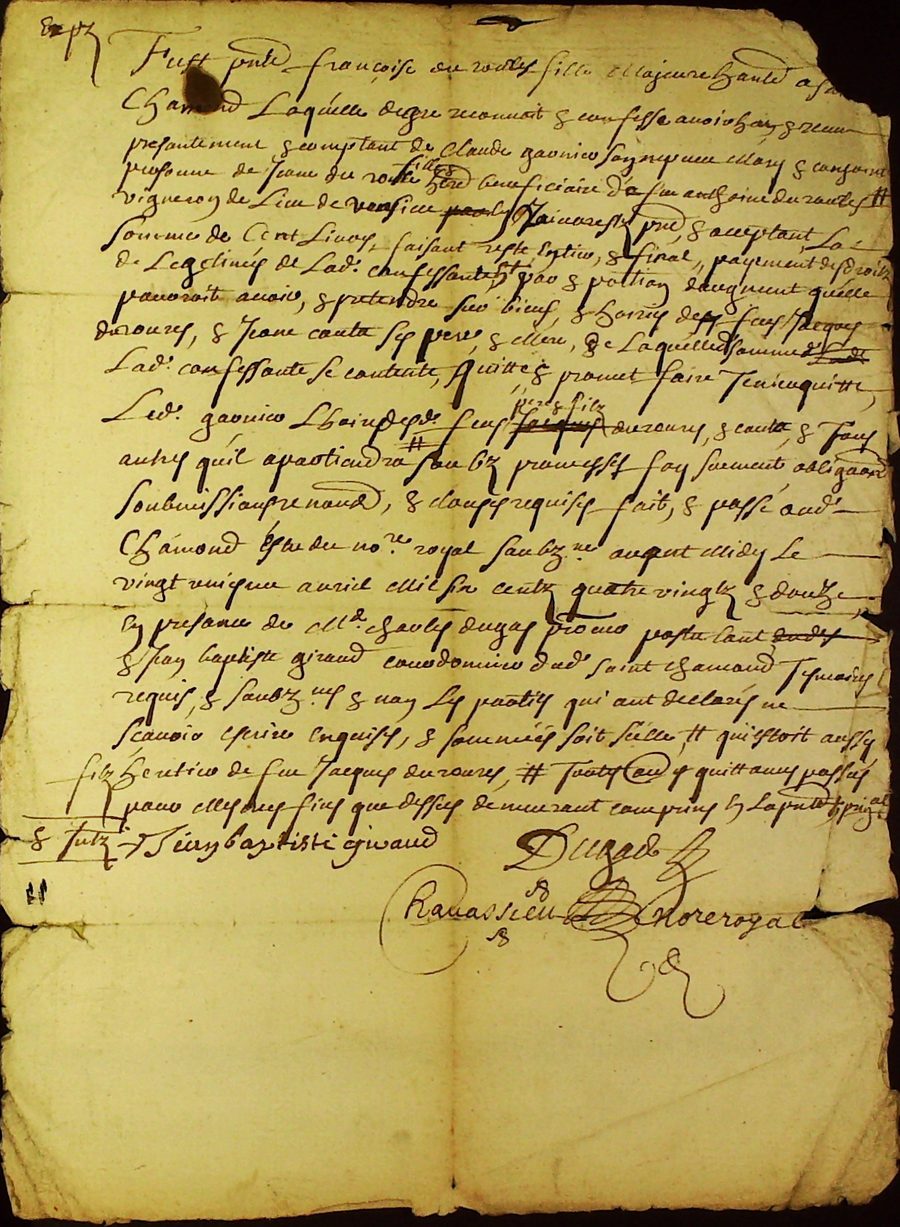 Expé
Fust pnte françoise duroures fille Majeure hante a
Chamond Laquelle degre reconnoit & confesse avoir heu & receu
presantement & comptant de Claude garnier son nepveu Mary & conjoint
personne de Jeane du roure fille & here beneficiaire de feu anthoine duroures #
vigneron de Lieu de , pnt, & acceptant La
somme de Cent Livres, faisant reste Entier, & final, payement desdroitz
de Legetimes de Lade confessante & par & portion daugment quelle
pouvroit avoir, & pretendre sur biens, & hoiries des feus Jacques
duroures, & Jeane couta ses pere, & Mere, De Laquelle somme
Lade confessante se contente, quitte & promet faire Tenir quitte,
Ledt garnier Lhoirie desdts feus pere & filz duroures, & couta, & Tous
autres quil apartiendra soubz promesses foy serment obligaon
soubmissions renonon, & clauses requises fait, & passé audt
Chamond Estude du nore royal soubzne avant Midy Le
vingt avril Mil six centz quatre vingtz & douze
En presance de Me charles dugas procur postulant
& Jean baptiste giraud cordonnier dudt saint chamond Tesmoins
requis, & soubznes & non Les parties qui ont declarés ne
scavoir escrire Enquises, & sommées soit séellé # qui estoit aussy
filz heritier de feu Jacques duroures, # Toutes quittances passés
pour Mesmes fins que dessus demeurant comprins En La pnte
& Jean baptiste giraud
Dugas
Ravassieu nore royal